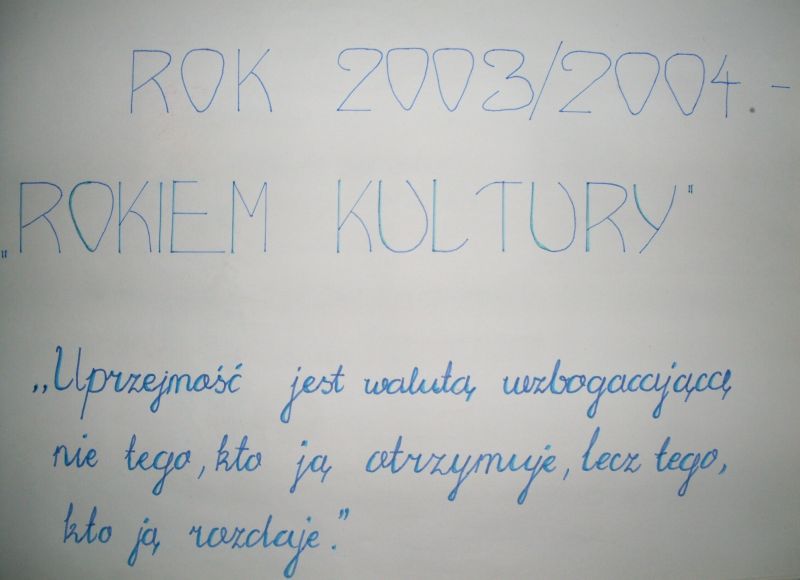 ROK 2003/2004. -
„ROKIEM KULTURY"
„Uprzejmość jest walutą wzbogacającą
nie tego, kto ją otrzymuje, lecz tego,
kto ją rozdaje."